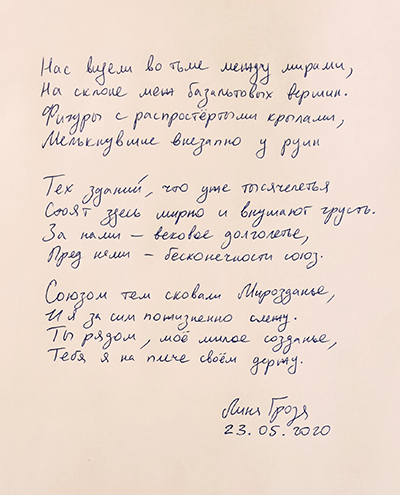 Нас видели во тьме между мирами,
На склоне меж базальтовых вершин.
Фигуры с распростёртыми крылами,
Мелькнувшие внезапно у руин
Тех зданий, что уже тысячелетья
Стоят здесь мирно и внушают грусть.
За нами – вековое долголетье,
Пред нами – бесконечности союз.
Союзом тем сковали Мирозданье,
И я за сим пожизненно слежу.
Ты рядом, моё милое созданье,
Тебя я на плече своём держу.
Лина Гроза
23.05.2020